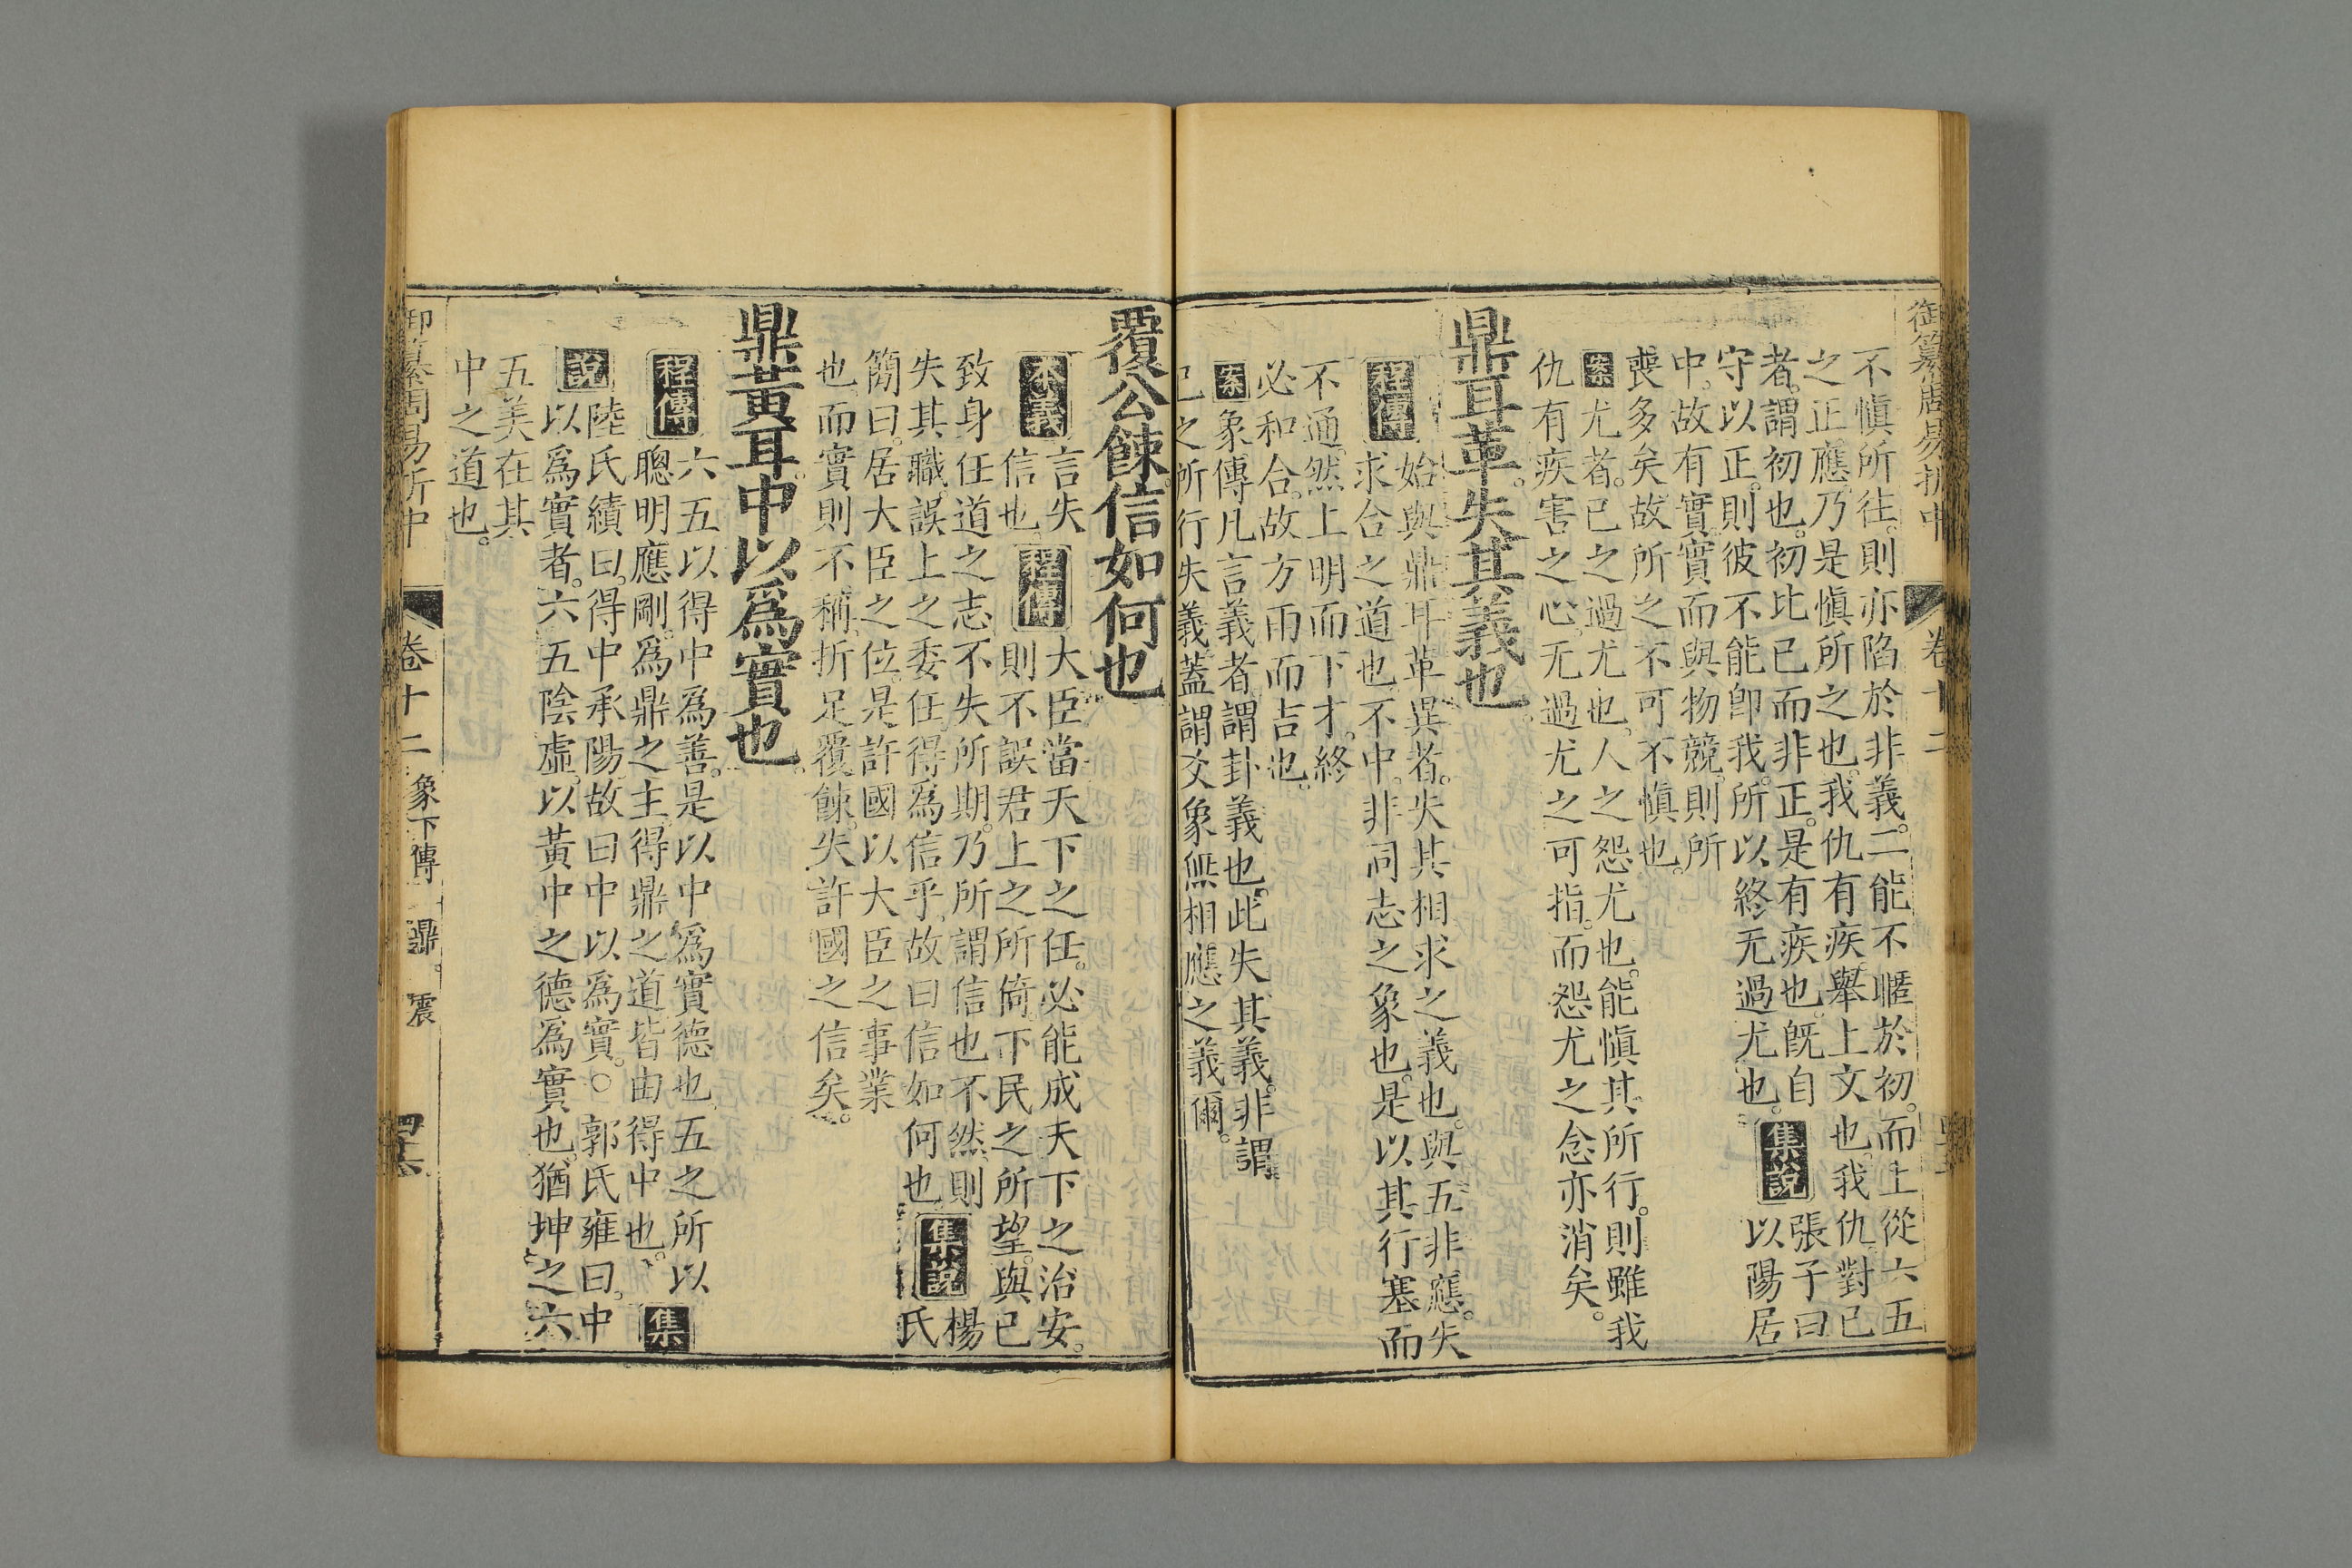 御纂周易折中 卷十二
不愼所往。則亦陷於非義。二能不暱於初。而上從六五
之正應。乃是愼所之也。我仇有疾。舉上文也。我仇。對已
者。謂初也。初比已而非正。是有疾也。旣自
守以正。則彼不能卽我。所以終无過尤也。集說 張子曰
以陽居
中。故有實。實而與物競。則所
喪多矣。故所之不可不愼也。
案 尤者。已之過尤也。人之怨尤也。能愼其所行。則雖我
仇有疾害之心。无過尤之可指。而怨尤之念亦消矣。
鼎耳革。失其義也。
程傳 始與鼎耳革異者。失其相求之義也。與五非應。失
求合之道也。不中。非同志之象也。是以其行塞而
不通。然上明而下才。終
必和合。故方雨而吉也。
案 象傳凡言義者。謂卦義也。此失其義。非謂
已之所行失義。蓋謂爻象無相應之義爾。
覆公餗。信如何也。
本義 言失
信也。
程傳 大臣當天下之任。必能成天下之治安。
則不誤君上之所倚。下民之所望。與已
致身任道之志。不失所期。乃所謂信也。不然。則
失其職。誤上之委任。得爲信乎。故曰信如何也。集說 楊氏
簡曰。居大臣之位。是許國以大臣之事業
也。而實則不稱。折足覆餗。失許國之信矣。
鼎黃耳。中以爲實也。
程傳 六五以得中爲善。是以中爲實德也。五之所以
聰明應剛。爲鼎之主。得鼎之道。皆由得中也。集
說 陸氏績曰。得中承陽。故曰中以爲實。○郭氏雍曰。中
以爲實者。六五陰虛。以黃中之德爲實也。猶坤之六
五。美在其
中之道也。
御纂周易折中 卷十二 象下傳 鼎。震 四十六